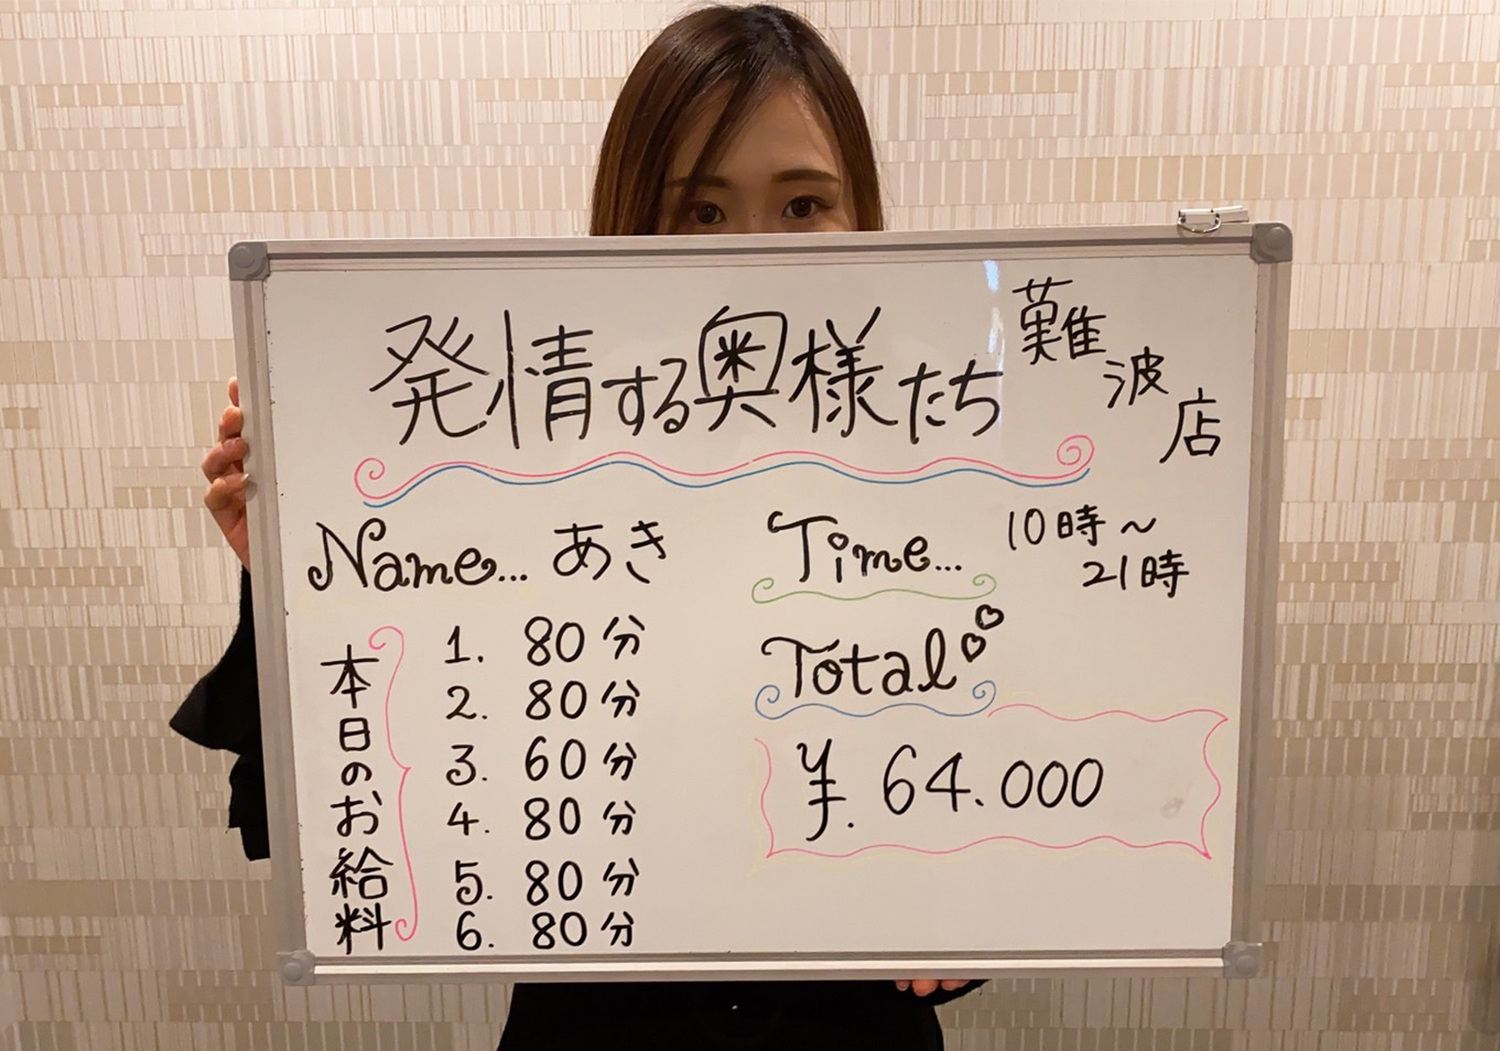 発情する奥様たち 難波店
Name... あき
Time... 10時～
21時
本日のお給料
1. 80分
2. 80分
3. 60分
4. 80分
5. 80分
6. 80分
Total
¥. 64.000